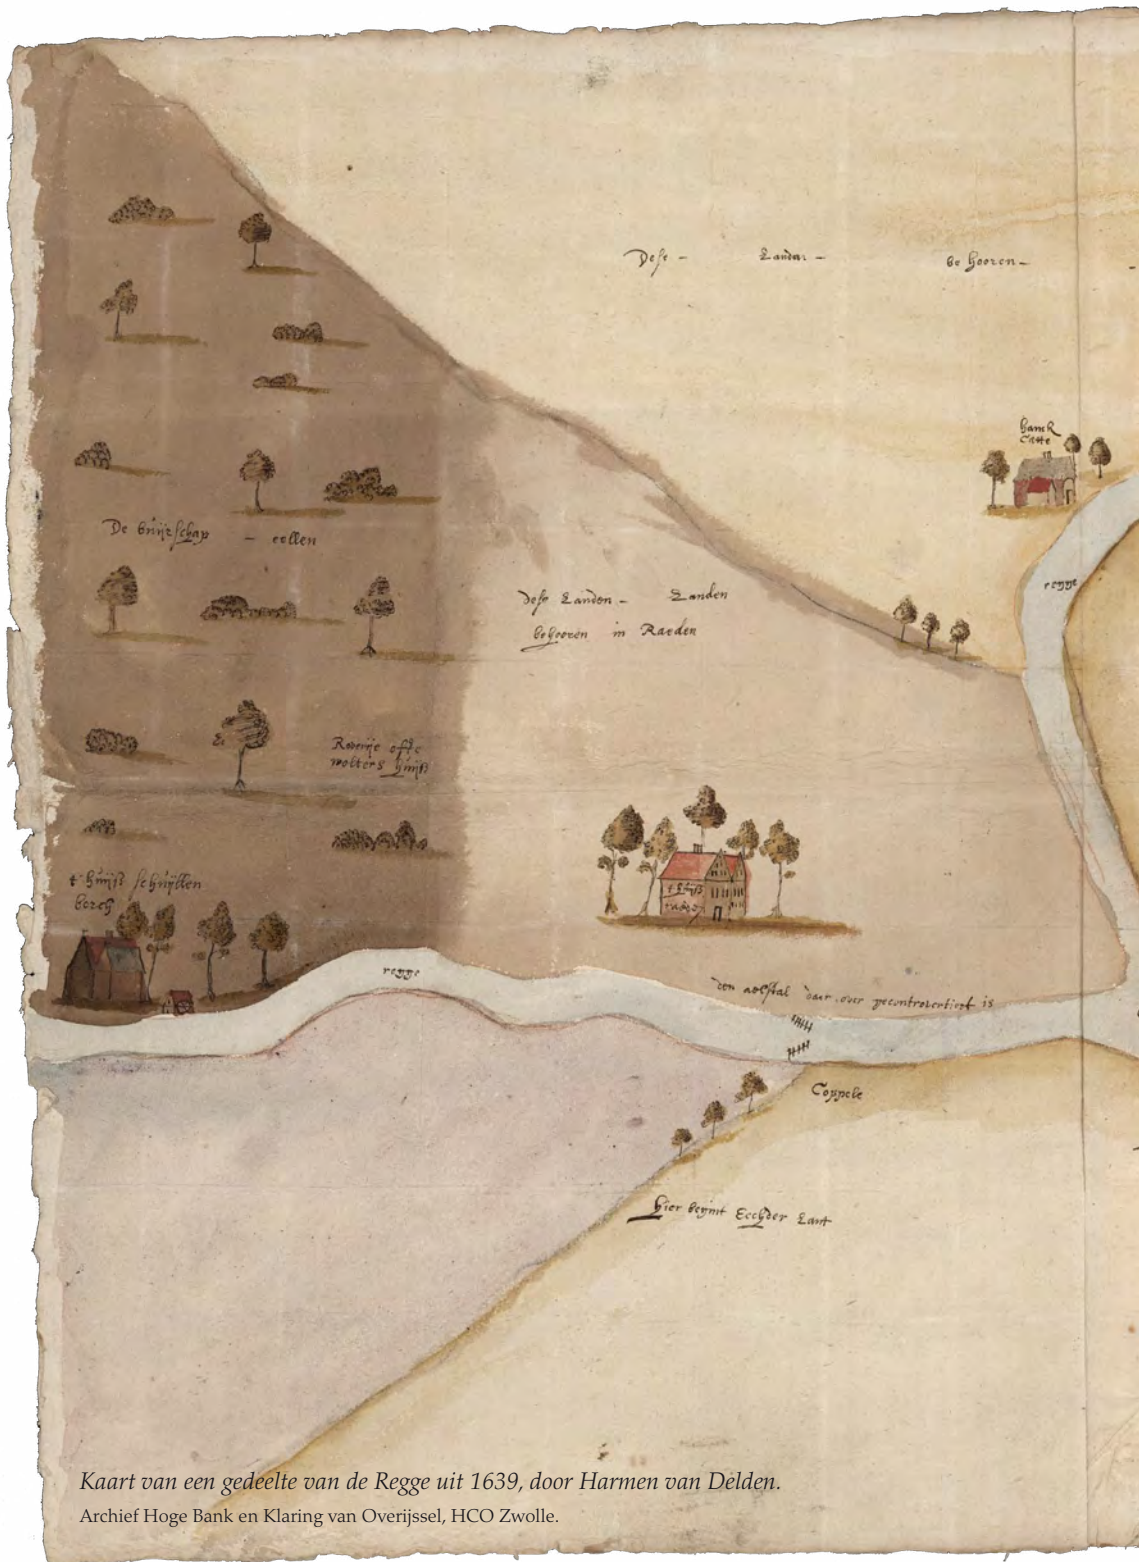 Dese - Landen - be hooren -
hanck
Catte
regge
De buijrschap - eellen
dese Landen - Landen
behooren in Raeden
Roverije ofte
wolters huijs
t'huijs schuijllen
berch
t huijs
regge
den aelstal daer over gecontroverteert is
Coppele
hier begint Eechder Lant
Kaart van een gedeelte van de Regge uit 1639, door Harmen van Delden.
Archief Hoge Bank en Klaring van Overijssel, HCO Zwolle.